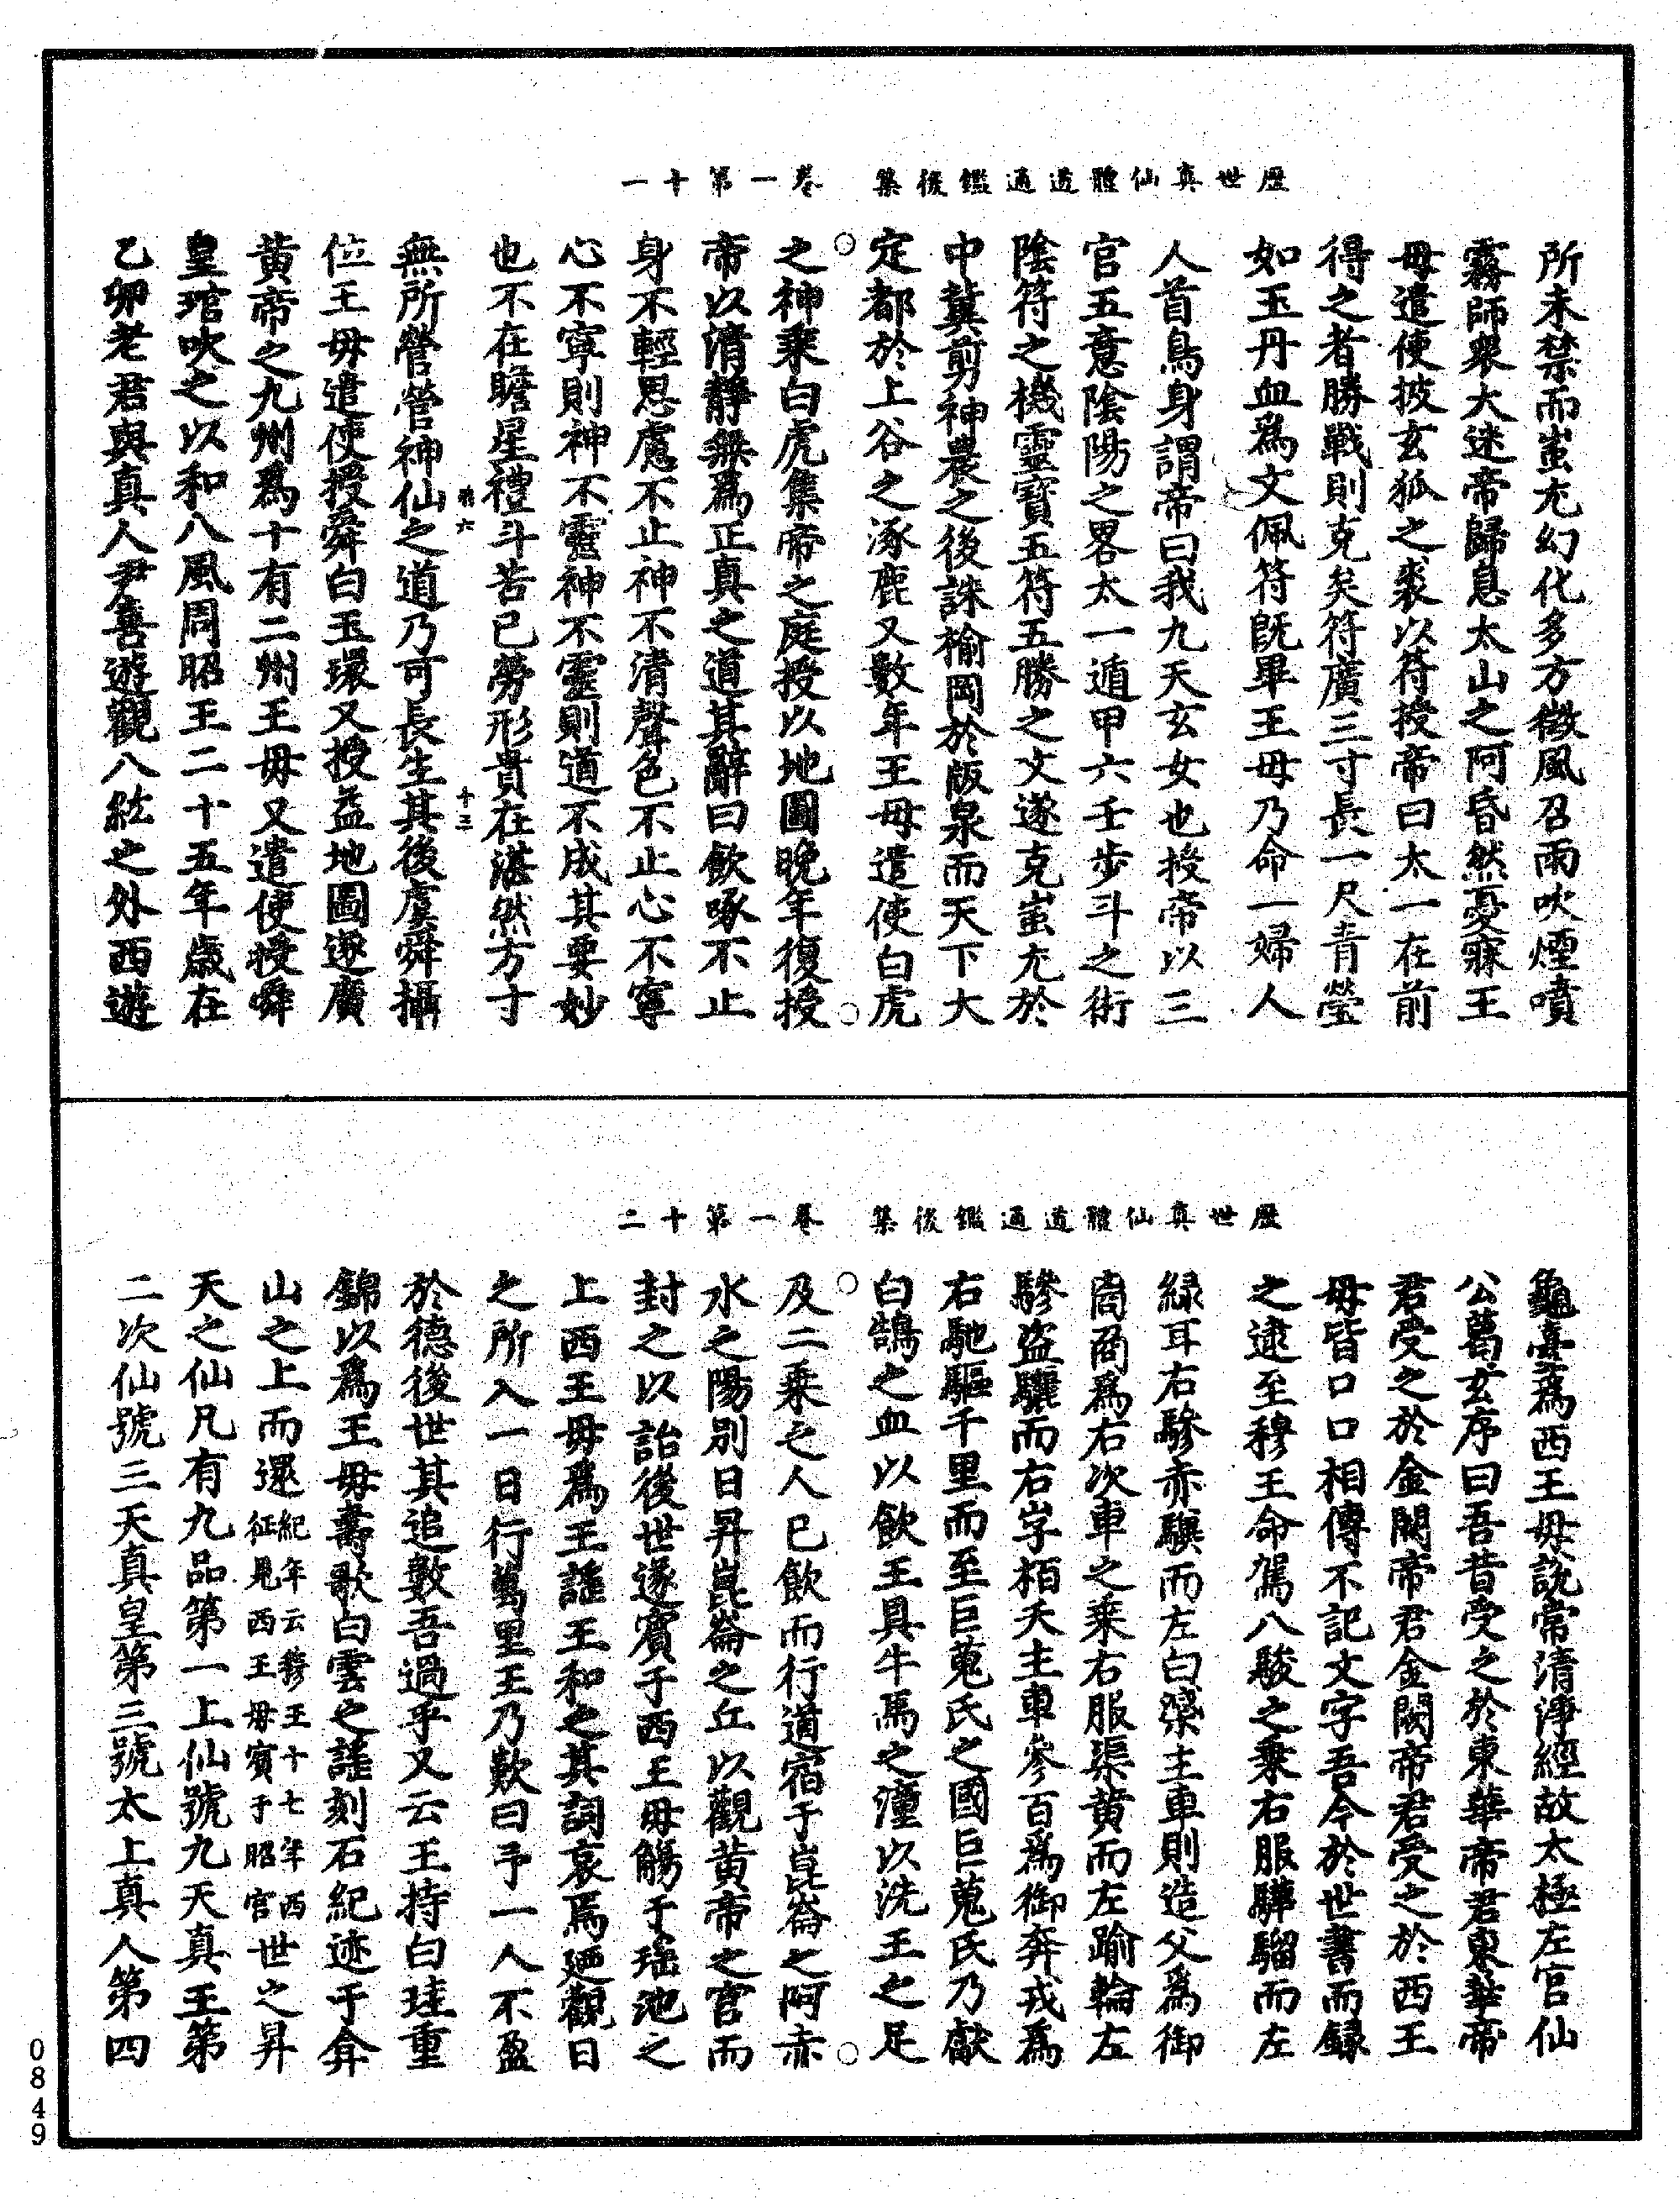 歷世真仙體道通鑑後集 卷一第十一
所未禁而蚩尤幻化多方徵風召雨吹煙噴
霧師衆大迷帝歸息太山之阿昏然憂寐王
母遣使披玄狐之裘以符授帝曰太一在前
得之者勝戰則克矣符廣三寸長一尺青瑩
如玉丹血爲文佩符旣畢王母乃命一婦人
人首鳥身謂帝曰我九天玄女也授帝以三
官五意陰陽之畧太一遁甲六壬步斗之術
陰符之機靈寶五符五勝之文遂克蚩尤於
中冀剪神農之後誅榆岡於阪泉而天下大
定都於上谷之涿鹿又數年王母遣使白虎
之神乘白虎集帝之庭授以地圖晚年復授
帝以清靜無爲正真之道其辭曰飲啄不止
身不輕思慮不止神不清聲色不止心不寧
心不寧則神不靈神不靈則道不成其要妙
也不在瞻星禮斗苦已勞形貴在湛然方寸
六 十三
無所營營神仙之道乃可長生其後虞舜攝
位王母遣使授舜白玉環又授益地圖遂廣
黃帝之九州爲十有二州王母又遣使授舜
皇琯吹之以和八風周昭王二十五年歲在
乙卯老君與真人尹喜遊觀八紘之外西遊
歷世真仙體道通鑑後集 卷一第十二
龜臺爲西王母說常清淨經故太極左官仙
公葛玄序曰吾昔受之於東華帝君東華帝
君受之於金闕帝君金闕帝君受之於西王
母皆口口相傳不記文字吾今於世書而錄
之逮至穆王命駕八駿之乘右服驊騮而左
綠耳右驂赤驥而左白𣚦主車則造父爲御
𧯆𠹧爲右次車之乘右服渠黃而左踰輪左
驂盜驪而右山子栢夭主車參百爲御奔戎爲
右馳驅千里而至巨蒐氏之國巨蒐氏乃獻
白鵠之血以飲王具牛馬之湩以洗王之足
及二乘之人已飲而行道宿于崑崙之阿赤
水之陽別日昇崑崙之丘以觀黃帝之宮而
封之以詒後世遂賓于西王母觴于瑤池之
上西王母爲王謠王和之其詞哀焉廼觀日
之所入一日行萬里王乃歎曰予一人不盈
於德後世其追數吾過乎又云王持白珪重
錦以爲王母壽歌白雲之謠刻石紀迹于弇
山之上而還紀年云穆王十七年西征見西王母賓于昭宮世之昇
天之仙凡有九品第一上仙號九天真王第
二次仙號三天真皇第三號太上真人第四
0849